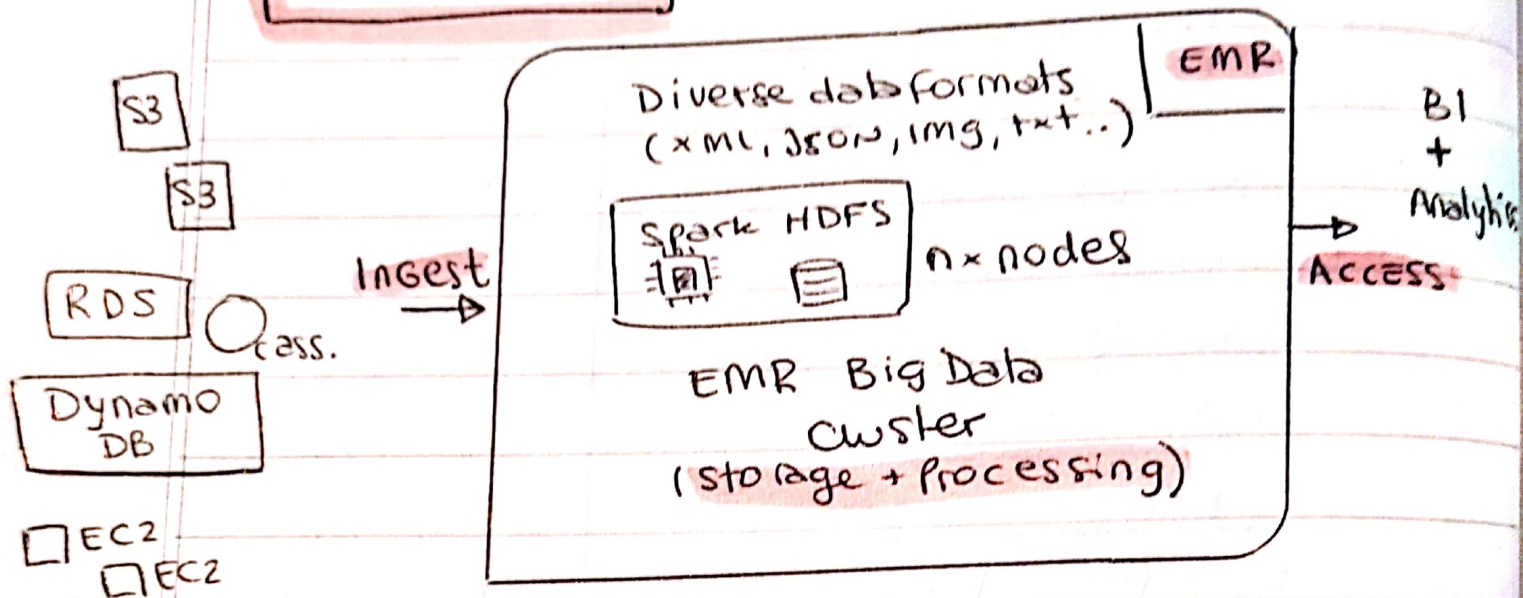 S3
S3
RDS
cass.
Dynamo
DB
EC2
EC2
INGEST
EMR
Diverse data formats
(xml, JSON, img, txt..)
Spark HDFS
n x nodes
EMR Big Data
Cluster
(storage + Processing)
ACCESS
BI
+
Analytics